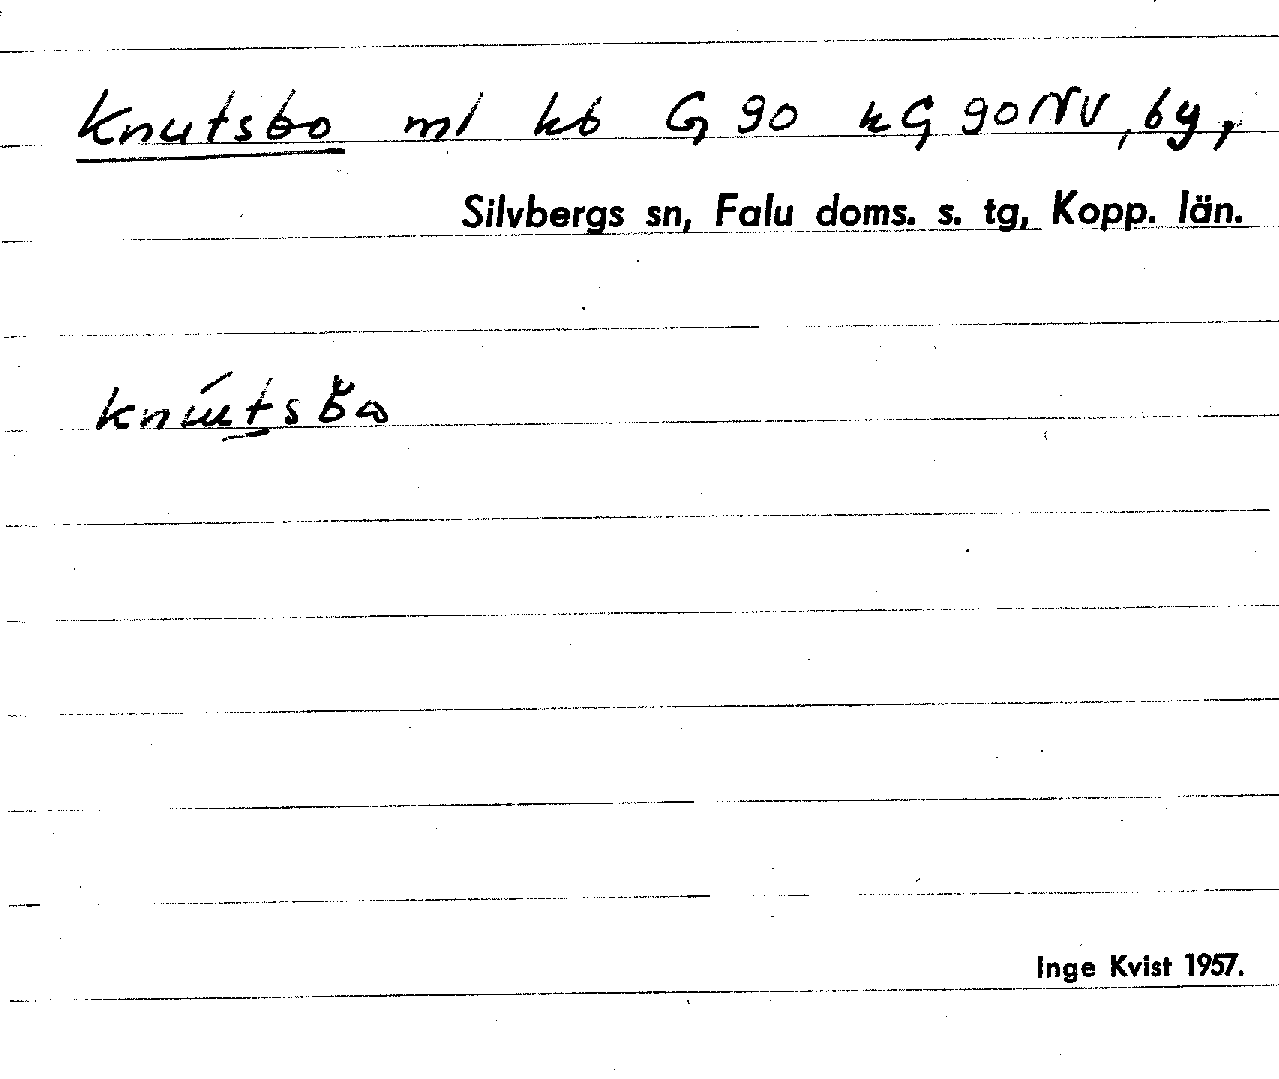 Knutsbo ml kb G 90 kG 90 NV, by,
Silvbergs sn, Falu doms. s. tg, Kopp. län.
Inge Kvist 1957.